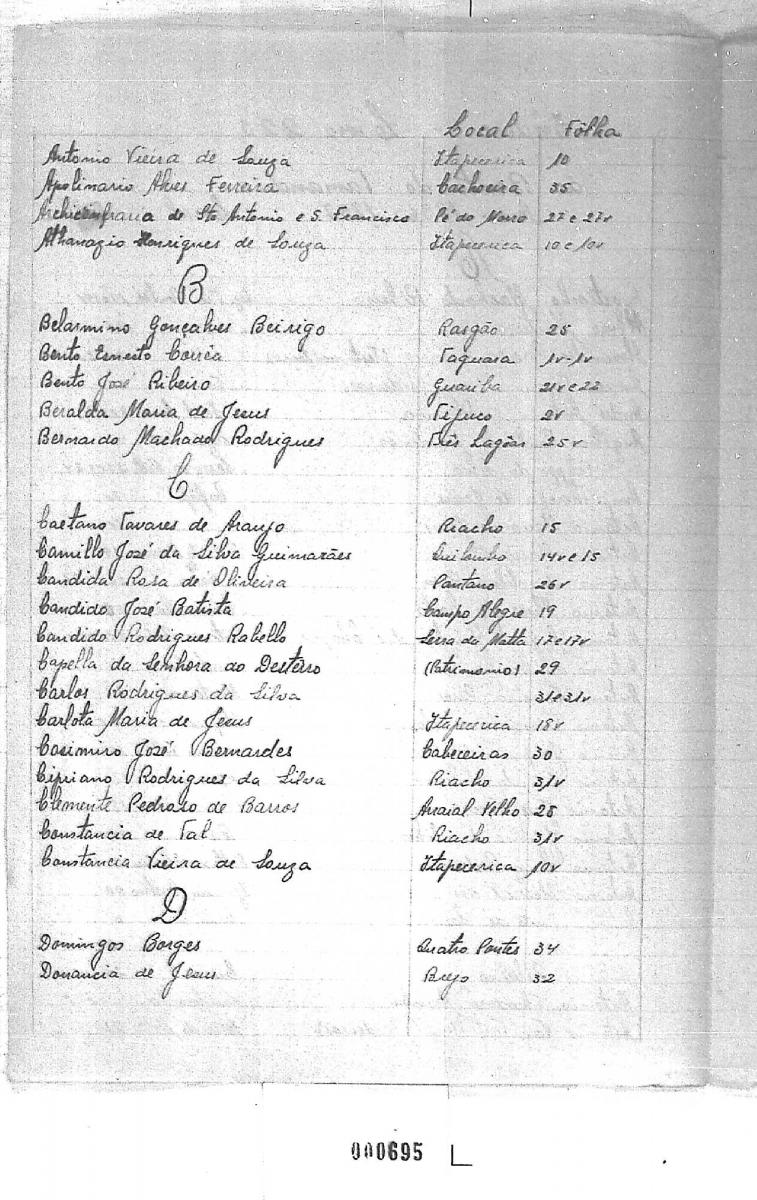 Local Fôlha
Antonio Vieira de Souza Itapecerica 10
Apolinario Alves Ferreira Cachoeira 35
Archiconfraria de Sto Antonio e S. Francisco Pé do Morro 27 e 27v
Athanazio Henriques de Souza Itapecerica 10 e 10v
B
Belarmino Gonçalves Beirigo Rasgão 25
Bento Ernesto Corrêa Taquara 1v-1v
Bento José Ribeiro Guariba 21v e 22
Beralda Maria de Jesus Tijuco 2v
Bernardo Machado Rodrigues Três Lagôas 25v
C
Caetano Tavares de Araujo Riacho 15
Camillo José da Silva Guimarães Quilombo 14v e 15
Candida Rosa de Oliveira Pantano 26v
Candido José Batista Campo Alegre 19
Candido Rodrigues Rabello Serra da Matta 17 e 17v
Capella da Senhora do Desterro (Patrimonio) 29
Carlos Rodrigues da Silva 31 e 31v
Carlota Maria de Jesus Itapecerica 18v
Casimiro José Bernardes Cabeceiras 30
Cipriano Rodrigues da Silva Riacho 31v
Clemente Pedrozo de Barros Arraial Velho 28
Constancia de Tal Riacho 31v
Constancia Vieira de Souza Itapecerica 10v
D
Domingos Borges Quatro Pontes 34
Donancia de Jesus Brejo 32
000695